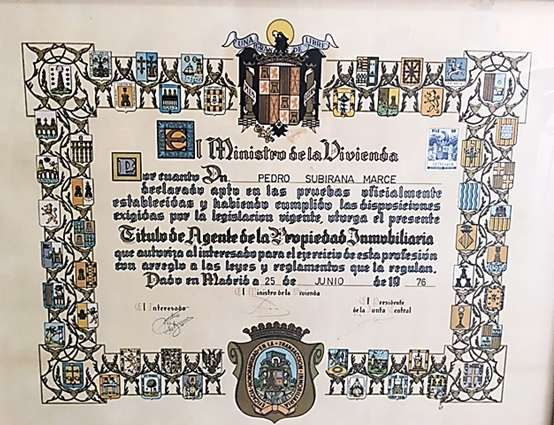 UNA LIBRE
El Ministro de la Vivienda
Por cuanto Dn. PEDRO SUBIRANA MARCE
declarado apto en las pruebas oficialmente
establecidas y habiendo cumplido las disposiciones
exigidas por la legislacion vigente, otorga el presente
Titulo de Agente de la Propiedad Inmobiliaria
que autoriza al interesado para el ejercicio de esta profesion
con arreglo a las leyes y reglamentos que la regulan.
Dado en Madrid a 25 de JUNIO de 19 76
El Interesado
El Ministro de la Vivienda
El Presidente
de la Junta Central